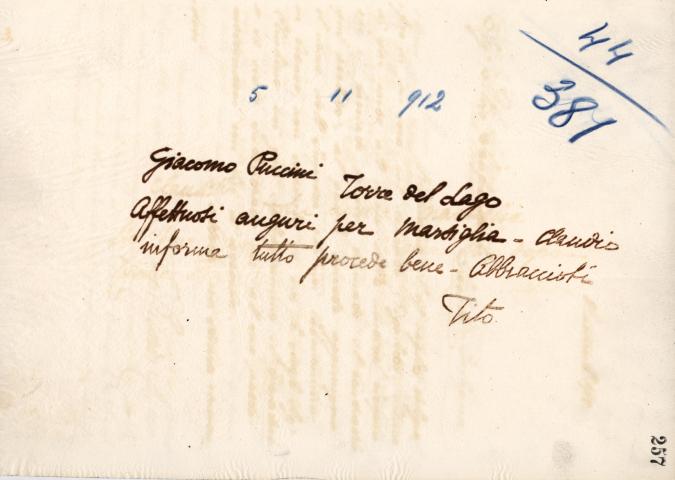 44
381
5 11 912
Giacomo Puccini Torre del Lago
Affettuosi auguri per Marsiglia - Claudio
informa tutto procede bene - Abbraccioti
Tito
257